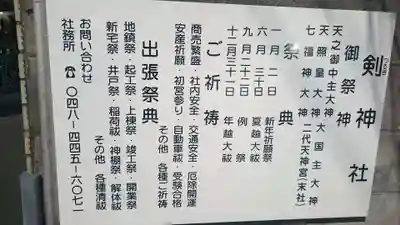 剣神社
御祭神
天之御中主大神
天照皇大神 大国主大神
七福神大神 二代天神宮(末社)
祭典
一月一日 新年祈願祭
六月三十日 夏越大祓
九月二十二日 例祭
十二月三十一日 年越大祓
ご祈祷
商売繁盛・社内安全・交通安全・厄除開運
安産祈願・初宮参り・自動車祓・受験合格
その他 各種ご祈祷
出張祭典
地鎮祭・起工祭・上棟祭・竣工祭・開業祭
新宅祭・井戸祭・稲荷祓・神棚祭・解体祓
その他 各種清祓
お問い合わせ
社務所 ☎ 〇四八-四四五-六〇七一